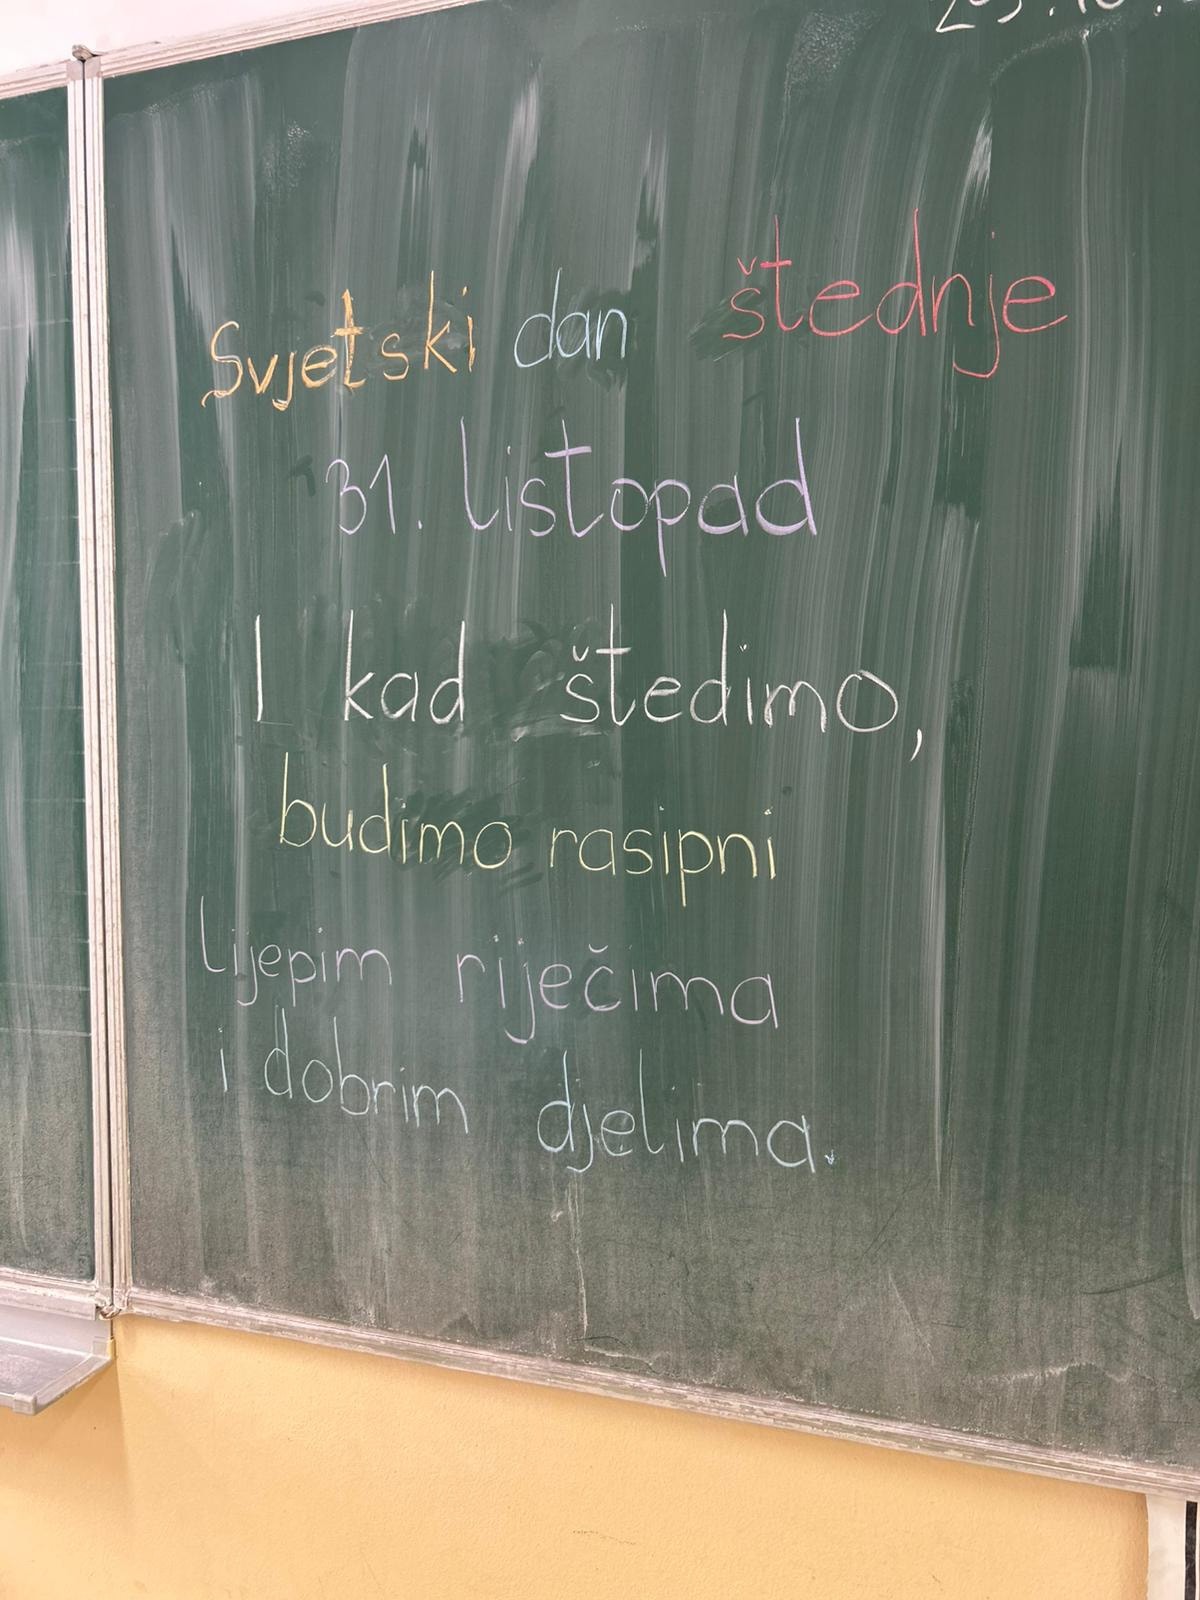 Svjetski dan štednje
31. listopad
I kad štedimo,
budimo rasipni
lijepim riječima
i dobrim djelima.